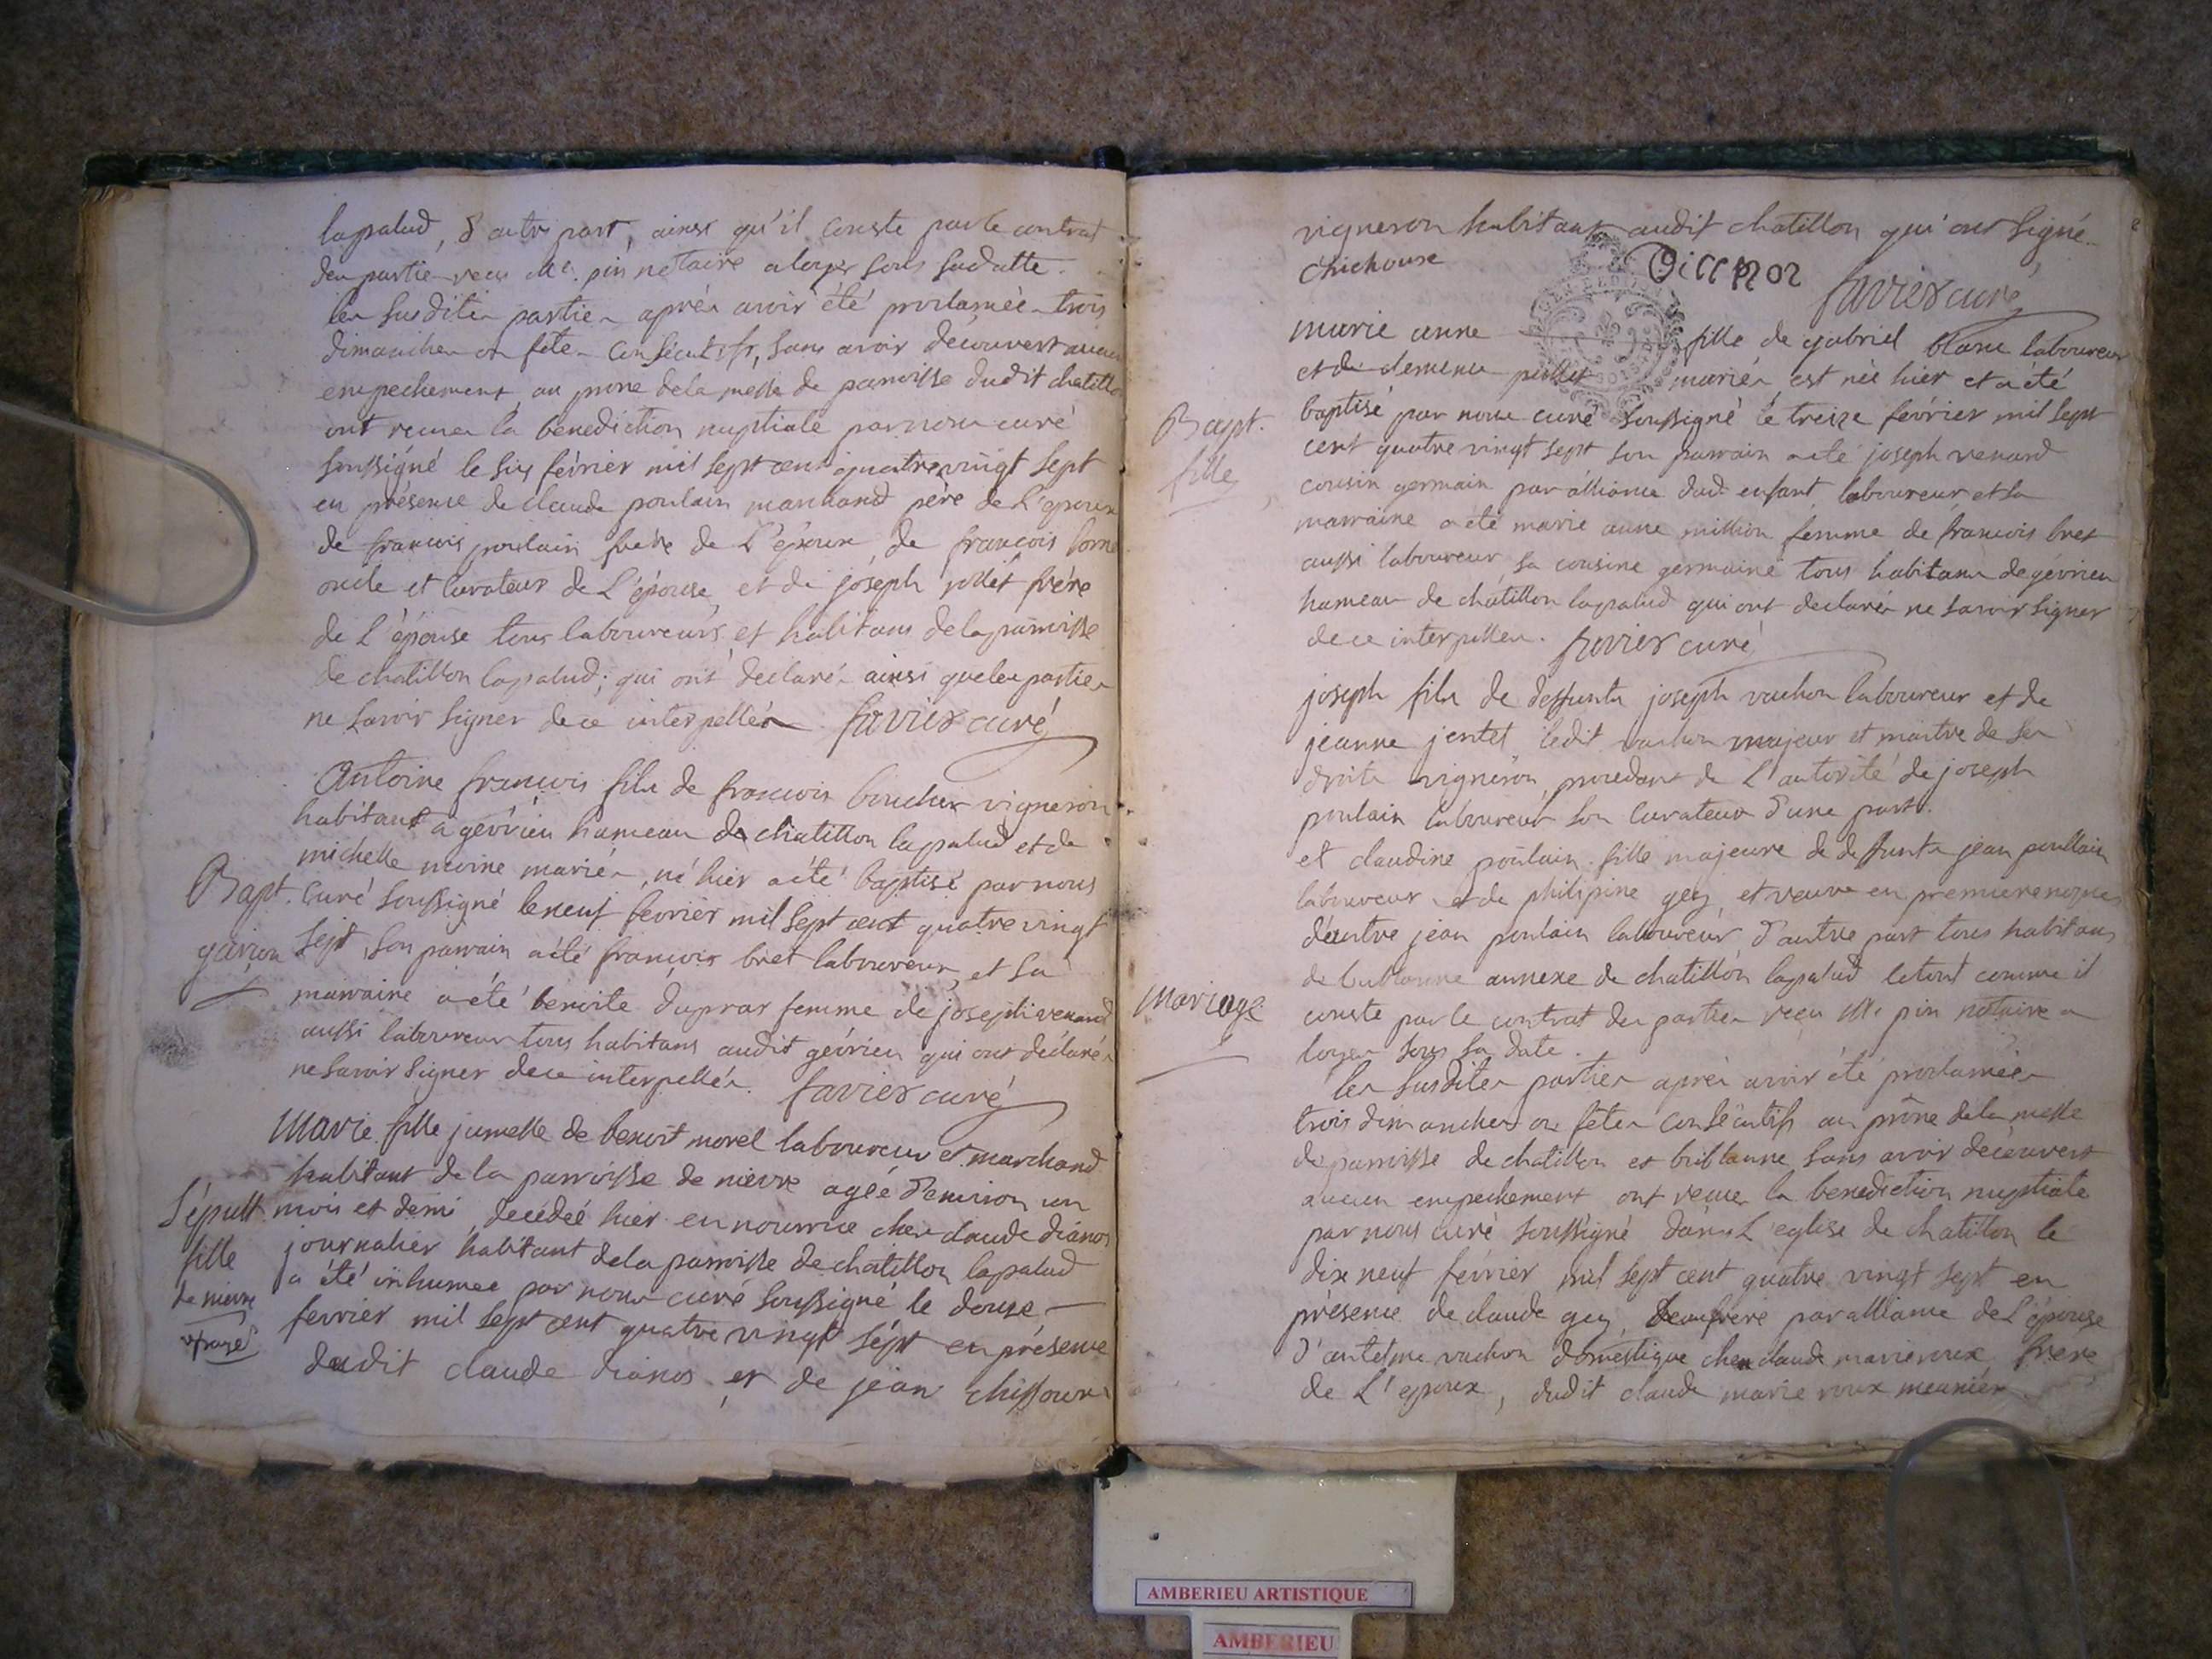 lapalud, d'autre part, ainsi qu'il conste par le contrat
des parties recu Me. pin notaire a loyes sous sa datte.
les susdites parties après avoir été proclamées trois
dimanches ou fêtes consécutifs, sans avoir découvert aucun
empechement, au prone de la messe de paroisse dudit chatillon
ont recues la benediction nuptiale par nous curé
soussigné le six février mil sept cent quatre vingt sept
en présence de claude poulain marchand père de l'époux
de françois poulain frère de l'époux, de françois
oncle et curateur de L'épouse, et de joseph jollet frére
de L'épouse tous laboureurs, et habitans de la paroisse
de chatillon lapalud; qui ont declarés ainsi que les parties
ne savoir signer de ce interpellés favier curé
Antoine françois fils de françois boucher vigneron
habitant a gévrieu hameau de chatillon lapalud et de
michelle moine mariés, né hier a été baptisé par nous
Bapt. curé soussigné le neuf fevrier mil sept cent quatre vingt
garçon sept, son parrain a été françois bret laboureur, et sa
marraine a été benoite duprar femme de joseph venard
aussi laboureur tous habitans audit gévrieu qui ont déclarés
ne savoir signer de ce interpellés. favier curé
Marie fille jumelle de benoit morel laboureur et marchand
habitant de la paroisse de nievre agée d'environ un
Sépult mois et demi, decédée hier en nourrice chez claude dianos
fille journalier habitant de la paroisse de chatillon lapalud
de nievre a été inhumée par nous curé soussigné le douze
fevrier mil sept cent quatre vingt sept en présence
dudit claude dianos et de jean chissoure
vigneron habitant audit chatillon qui ont signé.
chichoure Dianos favier curé
marie anne fille de gabriel blanc laboureur
et de clemence pollet mariés, est née hier et a été
Bapt. baptisé par nous curé soussigné le treize février mil sept
fille cent quatre vingt sept son parrain a été joseph venard
cousin germain par alliance dud. enfant, laboureur et sa
marraine a été marie anne million femme de françois bret
aussi laboureur sa cousine germaine tous habitans de gévrieu
hameau de chatillon lapalud qui ont declarés ne savoir signer
de ce interpellés. favier curé
joseph fils de deffunts joseph vachon laboureur et de
jeanne jentet ledit vachon majeur et maitre de ses
droits vigneron, procedant de L'autorité de joseph
poulain laboureur son curateur d'une part.
et claudine poulain fille majeure de deffunts jean poullain
laboureur et de philipine gey, et veuve en premiere noces
d'autre jean poulain laboureur d'autre part tous habitans
de bublanne annexe de chatillon lapalud le tout comme il
Mariage conste par le contrat des parties recu Me pin notaire a
loyes sous sa date.
les susdites parties après avoir été proclamées
trois dimanches ou fêtes consécutifs au prône de la messe
de paroisse de chatillon et bublanne sans avoir découvert
aucun empechement ont recues la benediction nuptiale
par nous curé soussigné dans L'eglise de chatillon le
dix neuf février mil sept cent quatre vingt sept en
présence de claude gey, beaufrere par alliance de L'épouse
d'antelme vachon domestique chez claude marie roux frere
de L'epoux, dudit claude marie roux meunier
AMBERIEU ARTISTIQUE
AMBERIEU